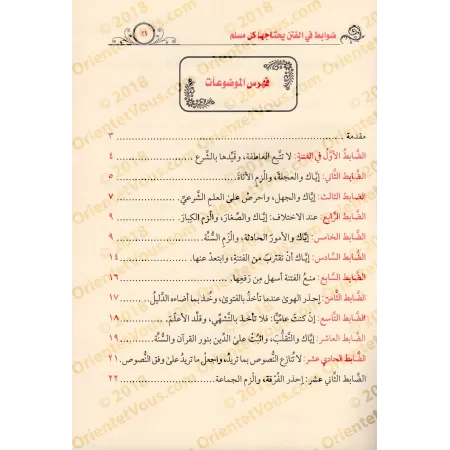 ضوابط في الفتن يحتاجها كل مسلم
٢٤
فهرس الموضوعات
مقدمة ................ ٣
الضَّابطُ الأوَّلُ في الفتنةِ: لا تتَّبع العاطفة، وقيِّدها بالشَّرع ................ ٤
الضَّابط الثَّاني: إيَّاك والعجلةَ، والْزمِ الأناةَ ................ ٥
الضابط الثالث: إيَّاك والجهل، واحرصْ على العلمِ الشَّرعيِّ ................ ٧
الضَّابط الرَّابع: عند الاختلاف: إيَّاك والصِّغارَ، والْزم الكِبارَ ................ ٩
الضَّابط الخامس: إيَّاك والأمورَ الحادثة، والْزَم السُّنَّة ................ ٩
الضَّابط السَّادس: إيَّاك أنْ تقتربَ من الفتنةِ، وابتعدْ عنها ................ ١٤
الضَّابط السَّابع: منعُ الفتنة أسهل مِن رَفعِها ................ ١٦
الضَّابط الثَّامن: إحذر الهوى عندما تأخذُ بالفتوى، وخُذ بما أضاءه الدَّليلُ ................ ١٧
الضَّابط التَّاسع: إن كنتَ عاميًّا: فلا تأخذ بالتَّشهِّي، وقلِّد الأعلَمَ ................ ١٨
الضَّابط العاشر: إيَّاك والتَّقلُّبَ، واثبُتْ علىٰ الدِّين بنور القرآن والسُّنَّة ................ ١٩
الضَّابط الحادي عشر: لا تُنازع النُّصوص بما تريدُ، واجعل ما تريدُ علىٰ وفق النُّصوص ................ ٢١
الضَّابط الثَّاني عشر: إحذر الفُرقة، والْزم الجماعة ................ ٢٢
© 2018
OrientetVous.com